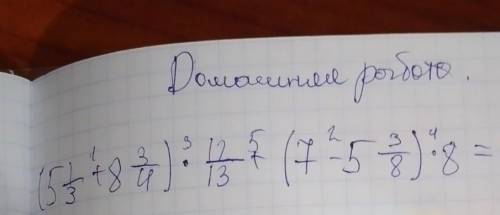 Домашняя работа.
(5 1/3 + 8 3/4) · 12/13 + (7 - 5 3/8) · 8 =